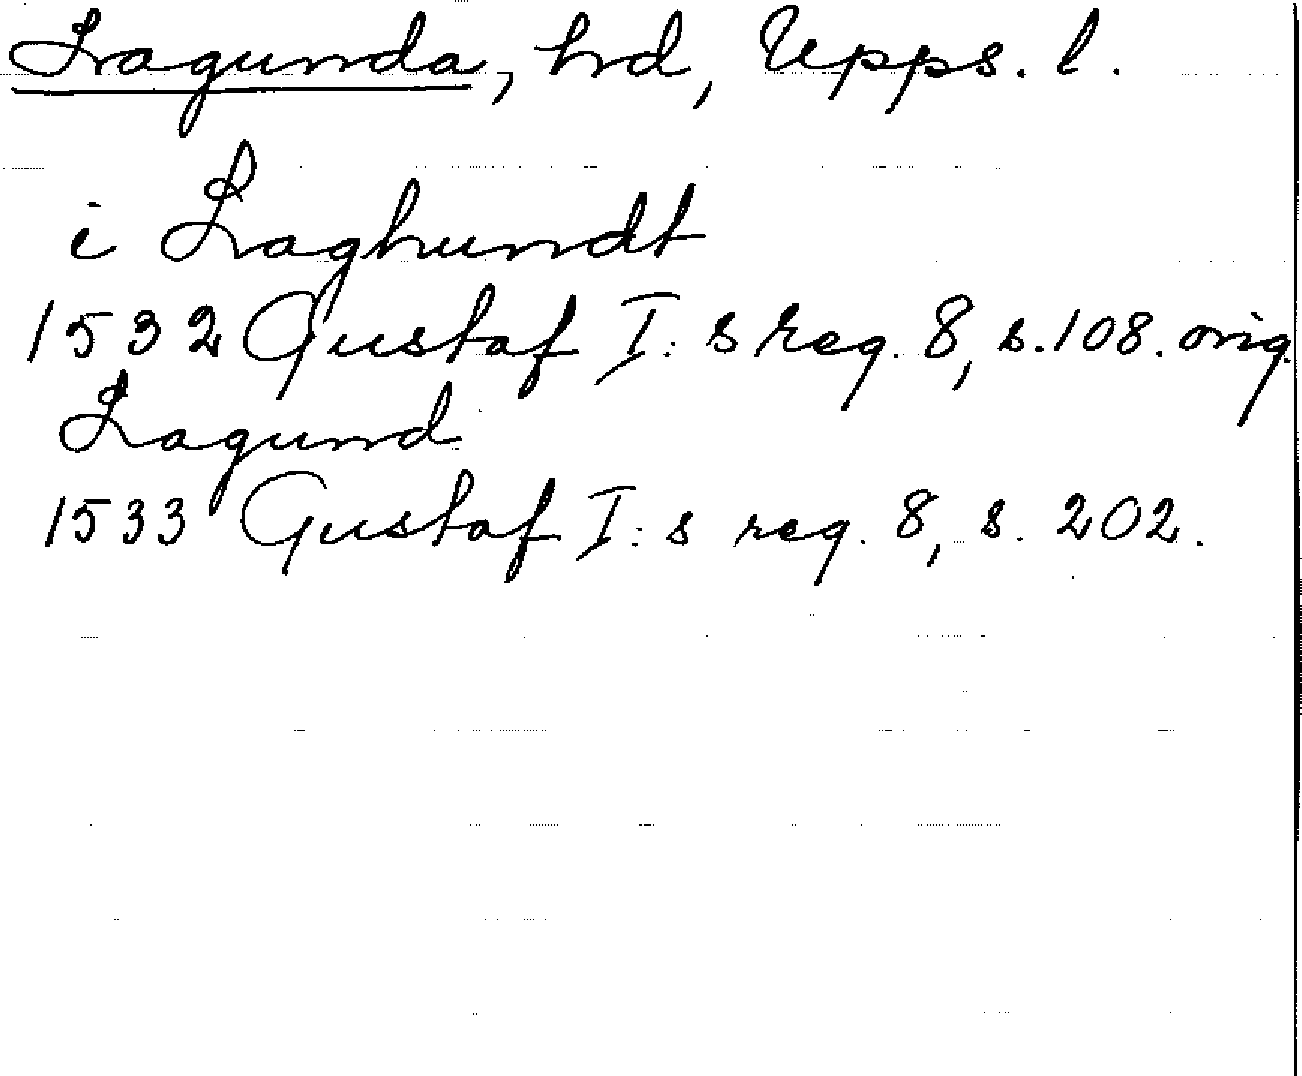 Lagunda, hd, Upps. l.
i Laghundt
1532 Gustaf I:s reg. 8, s. 108. orig.
Lagund
1533 Gustaf I:s reg. 8, s. 202.